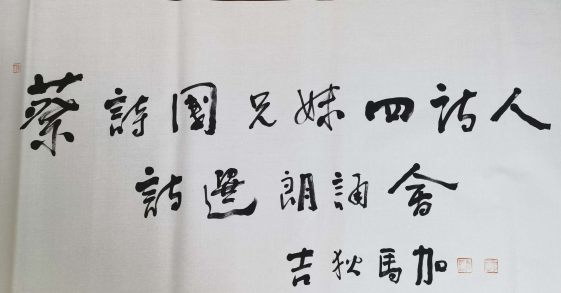 蔡詩國兄妹四诗人
詩選朗誦會
吉狄馬加